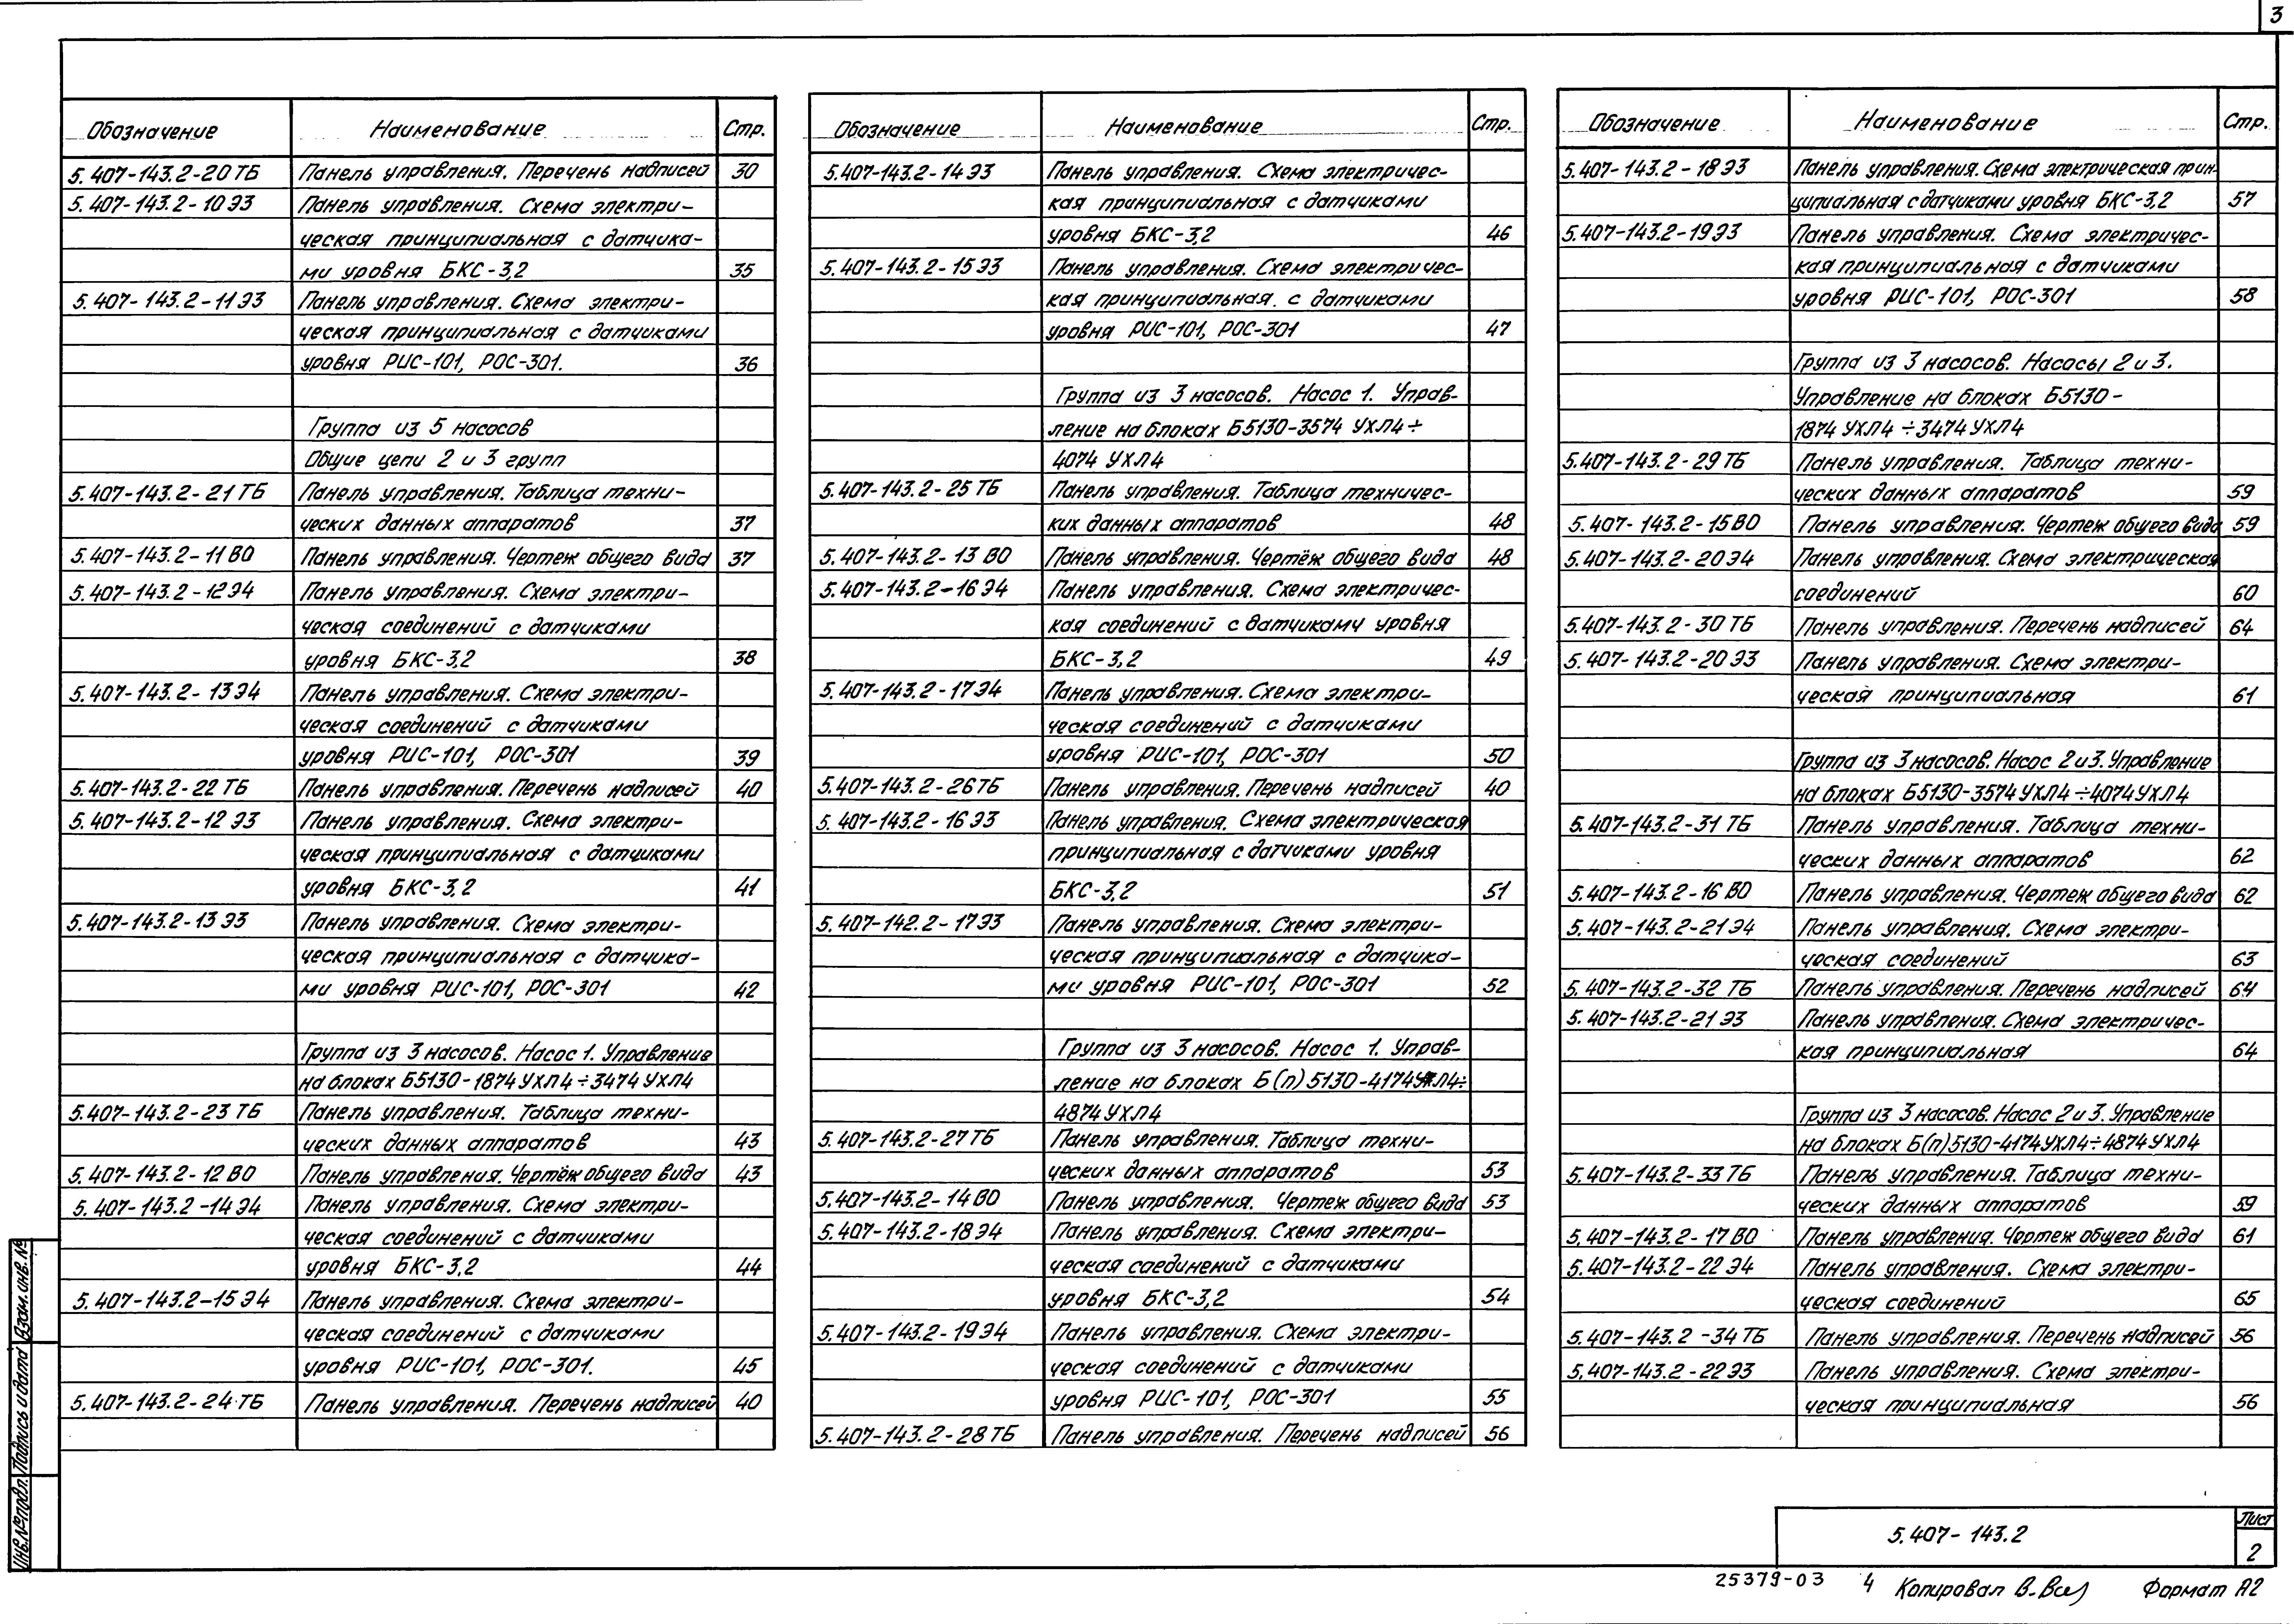 3
Обозначение Наименование Стр.
5.407-143.2-20ТБ Панель управления. Перечень надписей 30
5.407-143.2-10Э3 Панель управления. Схема электри-
ческая принципиальная с датчика-
ми уровня БКС-3,2 35
5.407-143.2-11Э3 Панель управления. Схема электри-
ческая принципиальная с датчиками
уровня РИС-101, РОС-301. 36
Группа из 5 насосов
Общие цепи 2 и 3 групп
5.407-143.2-21ТБ Панель управления. Таблица техни-
ческих данных аппаратов 37
5.407-143.2-11ВО Панель управления. Чертеж общего вида 37
5.407-143.2-12Э4 Панель управления. Схема электри-
ческая соединений с датчиками
уровня БКС-3,2 38
5.407-143.2-13Э4 Панель управления. Схема электри-
ческая соединений с датчиками
уровня РИС-101, РОС-301 39
5.407-143.2-22ТБ Панель управления. Перечень надписей 40
5.407-143.2-12Э3 Панель управления. Схема электри-
ческая принципиальная с датчиками
уровня БКС-3,2 41
5.407-143.2-13Э3 Панель управления. Схема электри-
ческая принципиальная с датчика-
ми уровня РИС-101, РОС-301 42
Группа из 3 насосов. Насос 1. Управление
на блоках Б5130-1874УХЛ4÷3474УХЛ4
5.407-143.2-23ТБ Панель управления. Таблица техни-
ческих данных аппаратов 43
5.407-143.2-12ВО Панель управления. Чертёж общего вида 43
5.407-143.2-14Э4 Панель управления. Схема электри-
ческая соединений с датчиками
уровня БКС-3,2 44
5.407-143.2-15Э4 Панель управления. Схема электри-
ческая соединений с датчиками
уровня РИС-101, РОС-301. 45
5.407-143.2-24ТБ Панель управления. Перечень надписей 40
Обозначение Наименование Стр.
5.407-143.2-14Э3 Панель управления. Схема электричес-
кая принципиальная с датчиками
уровня БКС-3,2 46
5.407-143.2-15Э3 Панель управления. Схема электричес-
кая принципиальная с датчиками
уровня РИС-101, РОС-301 47
Группа из 3 насосов. Насос 1. Управ-
ление на блоках Б5130-3574 УХЛ4÷
4074 УХЛ4
5.407-143.2-25ТБ Панель управления. Таблица техничес-
ких данных аппаратов 48
5.407-143.2-13ВО Панель управления. Чертёж общего вида 48
5.407-143.2-16Э4 Панель управления. Схема электричес-
кая соединений с датчиками уровня
БКС-3,2 49
5.407-143.2-17Э4 Панель управления. Схема электри-
ческая соединений с датчиками
уровня РИС-101, РОС-301 50
5.407-143.2-26ТБ Панель управления. Перечень надписей 40
5.407-143.2-16Э3 Панель управления. Схема электрическая
принципиальная с датчиками уровня
БКС-3,2 51
5.407-142.2-17Э3 Панель управления. Схема электри-
ческая принципиальная с датчика-
ми уровня РИС-101, РОС-301 52
Группа из 3 насосов. Насос 1. Управ-
ление на блоках Б(п)5130-4174УХЛ4÷
4874УХЛ4
5.407-143.2-27ТБ Панель управления. Таблица техни-
ческих данных аппаратов 53
5.407-143.2-14ВО Панель управления. Чертеж общего вида 53
5.407-143.2-18Э4 Панель управления. Схема электри-
ческая соединений с датчиками
уровня БКС-3,2 54
5.407-143.2-19Э4 Панель управления. Схема электри-
ческая соединений с датчиками
уровня РИС-101, РОС-301 55
5.407-143.2-28ТБ Панель управления. Перечень надписей 56
Обозначение Наименование Стр.
5.407-143.2-18Э3 Панель управления. Схема электрическая прин-
ципиальная с датчиками уровня БКС-3,2 57
5.407-143.2-19Э3 Панель управления. Схема электричес-
кая принципиальная с датчиками
уровня РИС-101, РОС-301 58
Группа из 3 насосов. Насосы 2 и 3.
Управление на блоках Б5130-
1874УХЛ4÷3474УХЛ4
5.407-143.2-29ТБ Панель управления. Таблица техни-
ческих данных аппаратов 59
5.407-143.2-15ВО Панель управления. Чертеж общего вида 59
5.407-143.2-20Э4 Панель управления. Схема электрическая
соединений 60
5.407-143.2-30ТБ Панель управления. Перечень надписей 64
5.407-143.2-20Э3 Панель управления. Схема электри-
ческая принципиальная 61
Группа из 3 насосов. Насос 2 и 3. Управление
на блоках Б5130-3574УХЛ4÷4074УХЛ4
5.407-143.2-31ТБ Панель управления. Таблица техни-
ческих данных аппаратов 62
5.407-143.2-16ВО Панель управления. Чертеж общего вида 62
5.407-143.2-21Э4 Панель управления. Схема электри-
ческая соединений 63
5.407-143.2-32ТБ Панель управления. Перечень надписей 64
5.407-143.2-21Э3 Панель управления. Схема электричес-
кая принципиальная 64
Группа из 3 насосов. Насос 2 и 3. Управление
на блоках Б(п)5130-4174УХЛ4÷4874УХЛ4
5.407-143.2-33ТБ Панель управления. Таблица техни-
ческих данных аппаратов 59
5.407-143.2-17ВО Панель управления. Чертеж общего вида 61
5.407-143.2-22Э4 Панель управления. Схема электри-
ческая соединений 65
5.407-143.2-34ТБ Панель управления. Перечень надписей 56
5.407-143.2-22Э3 Панель управления. Схема электри-
ческая принципиальная 56
Инв.№подл. Подпись и дата Взам.инв.№
5.407-143.2
Лист
2
25379-03 4 Копировал Формат А2